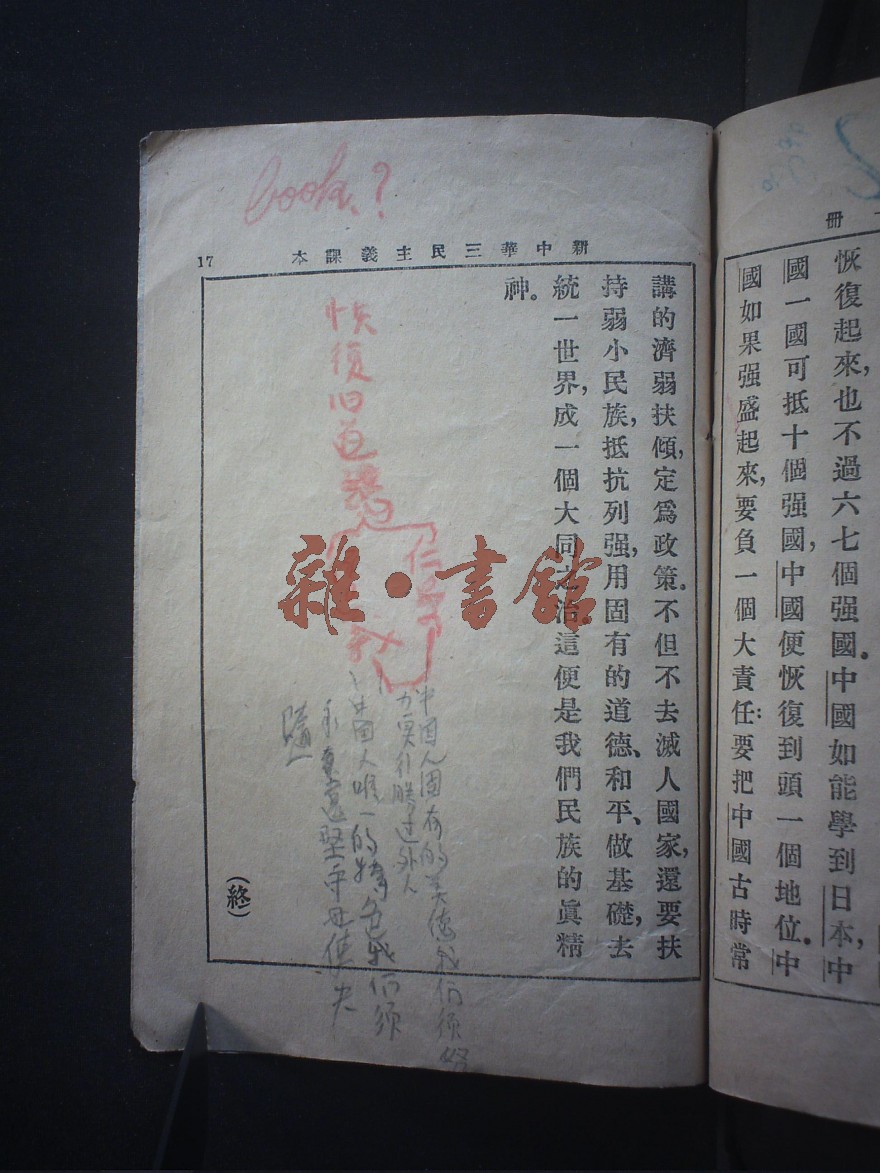 册
恢復起來,也不過六七個强國。中國如能學到日本,中
國一國可抵十個强國,中國便恢復到頭一個地位。中
國如果强盛起來,要負一個大責任:要把中國古時常
book.?
新中華三民主義課本
17
講的濟弱扶傾,定爲政策。不但不去滅人國家,還要扶
持弱小民族,抵抗列强,用固有的道德、和平、做基礎,去
統一世界,成一個大同之治,這便是我們民族的眞精
神。
(終)
恢復旧道德
雜·書館
中国人固有的美德我们须努
力 勝过外人
中国人唯一的特色我们须
坚守 失